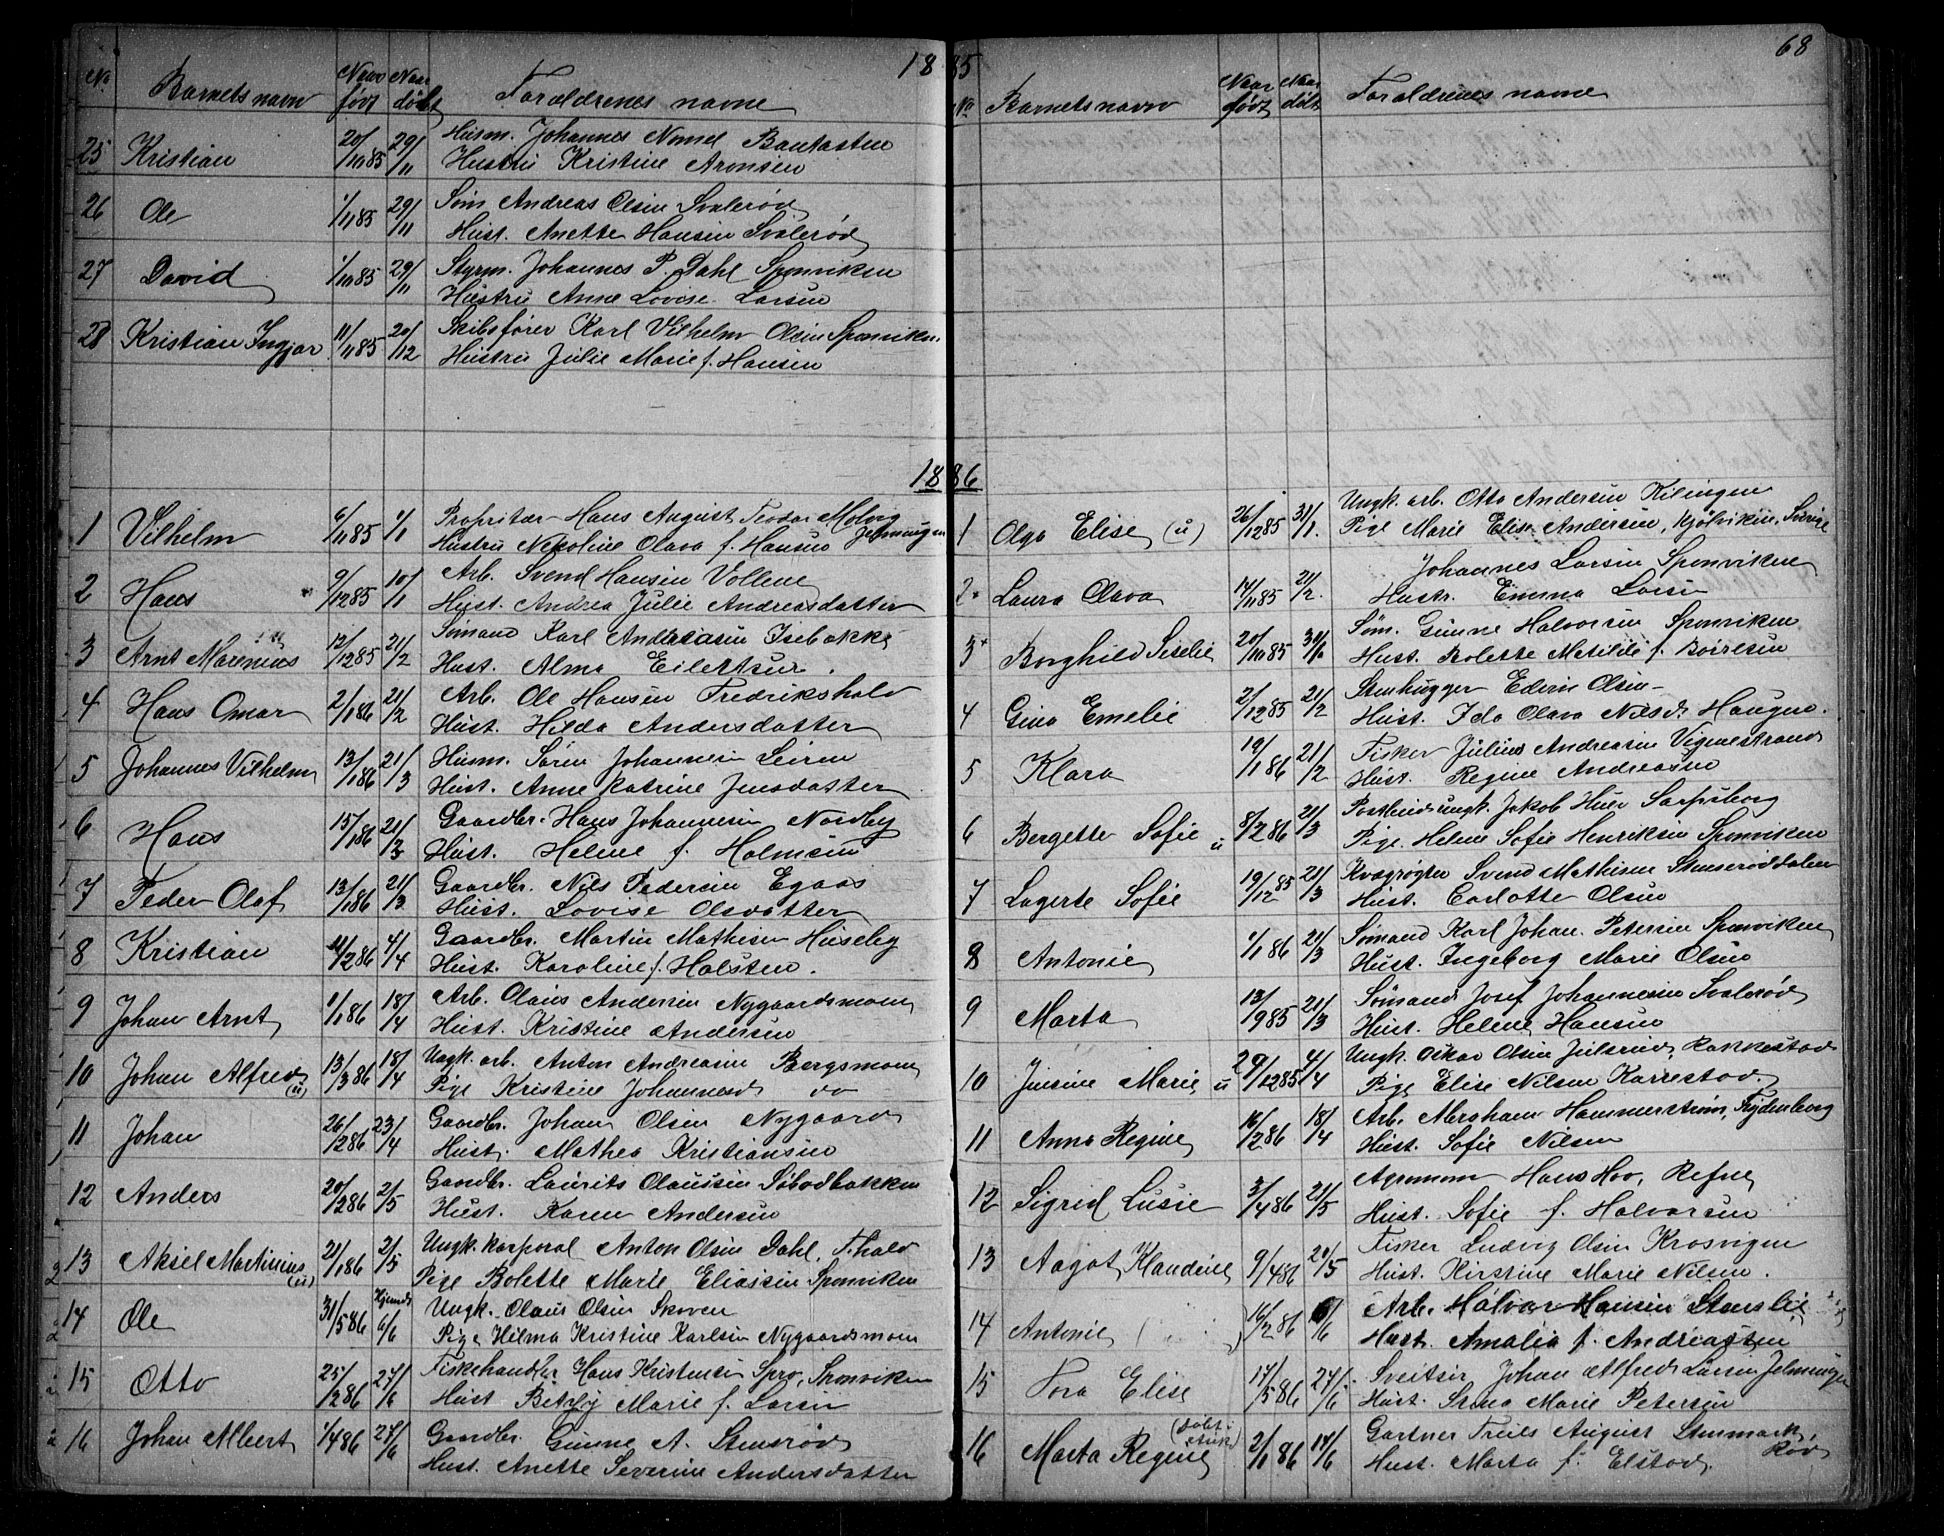 1885
68
No Barnets navn Naar født Naar døbt Forældrenes navne
25 Kristian 20/10 85 29/11 Husm. Johannes Nomel Bautasten
Hustru Kristine Aronsen
26 Ole 1/11 85 29/11 Søm. Andreas Olsen Svalerød
Hust. Anette Hansen Svalerød
27 David 1/10 85 29/11 Styrm. Johannes P. Dahl Sponviken
Hustru Anne Lovise Larsen
28 Kristian Ingjar 11/11 85 20/12 Skibsfører Karl Vilhelm Olsen Sponviken
Hustru Julie Marie f. Hansen
1886
1 Vilhelm 6/11 85 1/1 Propritær Hans August Teodor Molvig
Hustru Nikoline Olava f. Hansen
2 Hans 9/12 85 10/1 Arb. Svend Hansen Vollene
Hust. Andrea Julie Andreasdatter
3 Arnt Marenius 12/12 85 21/2 Sømand Karl Andreasen Isebakke
Hust. Alma Eilertsen.
4 Hans Omar 2/1 86 21/2 Arb. Ole Hansen Fredrikshald
Hust. Hilda Andersdatter
5 Johannes Vilhelm 13/1 86 21/3 Husm. Søren Johannesen Leiren
Hust. Anne Katrine Jensdatter
6 Hans 15/1 86 21/3 Gaardbr. Hans Johannesen Nordby
Hust. Helene f. Holmsen
7 Peder Olaf 13/1 86 21/3 Gaardbr. Nils Pedersen Egaas
Hust. Lovise Olsdatter
8 Kristian 4/2 86 4/4 Gaardbr. Martin Mathisen Huseby
Hust. Karoline f. Holsten.
9 Johan Arnt 1/1 86 18/4 Arb. Olaus Andersen Nygaardsmoen
Hust. Kristine Andersen
10 Johan Alfred (u) 13/3 86 18/4 Ungk. arb. Anton Andreasen Bergsmoen
Pige Kristine Johannesd do
11 Johan 26/2 86 23/4 Gaardbr. Johan Olsen Nygaard
Hust. Mathea Kristiansen
12 Anders 20/2 86 2/5 Gaardbr. Laurits Olaussen Søbodbakken
Hust. Karen Andersen
13 Aksel Martinius (u) 21/1 86 2/5 Ungk. Korporal Anton Olsen Dahl, F.hald
Pige Bolette Marie Eliassen Sponviken
14 Ole 31/5 86 Hjemd. 6/6 Ungk. Olaus Olsen Skoven
Pige Hilma Kristine Karlsen Nygaardsmoen
15 Otto 25/2 86 24/6 Fiskehandler Hans Kristensen Spro, Sponviken
Hust. Betzy Marie f. Larsen
16 Johan Albert 1/4 86 24/6 Gaardbr. Gunne A. Stensrød
Hust. Anette Severine Andersdatter
No Barnets navn Naar født Naar døbt Forældrenes navne
1 Olga Elise (u) 26/12 85 31/1. Ungk. arb. Otto Andersen Kilingen
Pige Marie Elise Andersen, Kjølviken, Sverige
2 Laura Olava 14/11 85 21/2. Johannes Larsen Sponviken
Hustr. Emma Larsen
3 Borghild Siselie 20/10 85 Søm. Gunne Halvorsen Sponviken
Hust. Bolette Matilde f. Børresen
4 Gina Emelie 2/12 85 21/2 Stenhugger Edvin Olsen
Hust. Ida Olava Nilsd. Haugen.
5 Klara 19/1 86 21/2 Fisker Julius Andreasen Vignestrand
Hust. Regine Andreasen
6 Bergette Sofie u 8/2 86 21/3 Postbud ungk. Jakob Huer Sarpsborg
Pige. Helene Sofie Henriksen Sponviken
7 Lagerte Sofie 19/12 85 21/3 Kvægrøgter Svend Mathisen Stenserøddalen
Hust. Carlotte Olsen
8 Antonie 1/1 86 21/3 Sømand Karl Johan Petersen Sponviken
Hust. Ingeborg Marie Olsen
9 Marta 13/9 85 21/3 Sømand Josef Johannesen Svalerød
Hust. Helene Hansen
10 Jensine Marie u 29/12 85 4/4 Ungk. Oskar Olsen Julsrud, Rakkestad
Pige Elise Nilsen Karrestad.
11 Anna Regine 16/2 86 18/4 Arb. Abraham Hammerstrøm, Frydenborg
Hust. Sofie Nilsen
12 Sigrid Lusie 3/4 86 21/5 Agronom Hans Hov, Refne
Hust. Sofie f. Halvorsen
13 Aagot Klaudine 9/4 86 20/5 Fisker Ludvig Olsen Krosvigen
Hust. Kirstine Marie Nilsen.
14 Antonie 16/2 86 6/6 Arb. Halvor Hansen Stenslie
Hust. Amalia f. Andreassen
15 Tora Elise 17/5 86 24/6 Sveitser Johan Alfred Larsen
Hust. Stina Marie Petersen
16 Marta Regine 2/1 86 14/6 Gartner Truls August Stenmark, Rød
Hust. Marta f. Elstad.